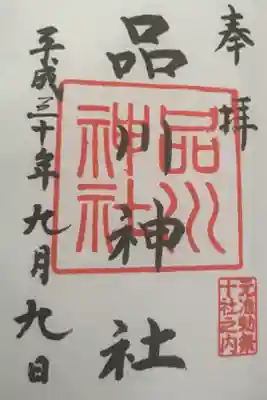 奉拝
品川神社
品川神社
元准勅祭
十社之内
平成三十年九月九日